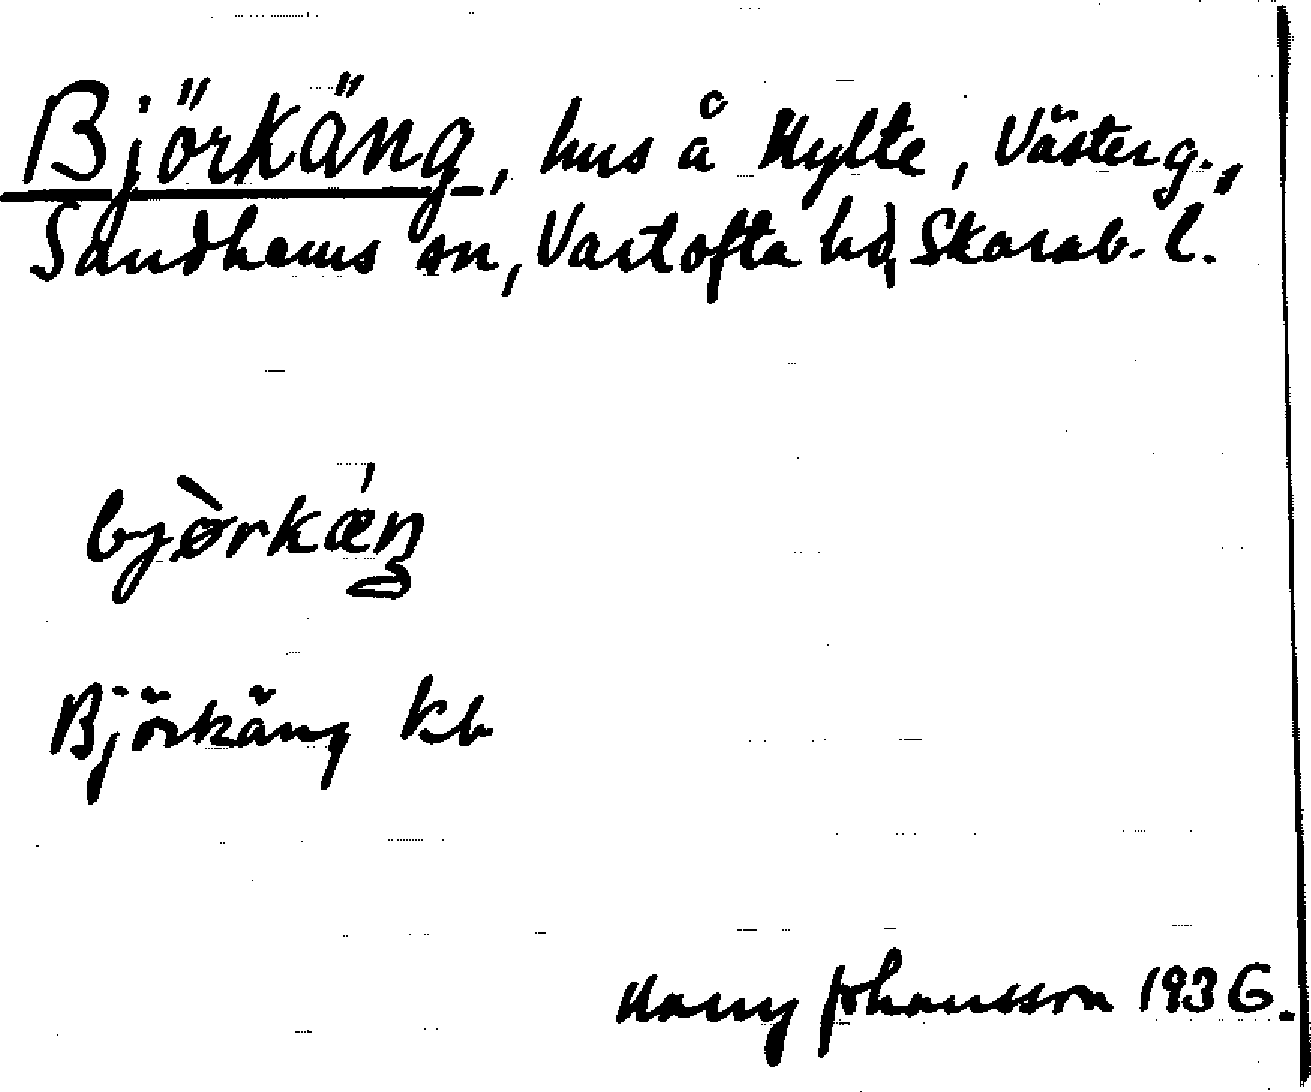 Björkäng, hus å Hylte, Västerg.,
Sandhems sn, Vartofta hd, Skarab. l.
bjòrkǽŋ
Björkäng kb
Harry Johansson 1936.